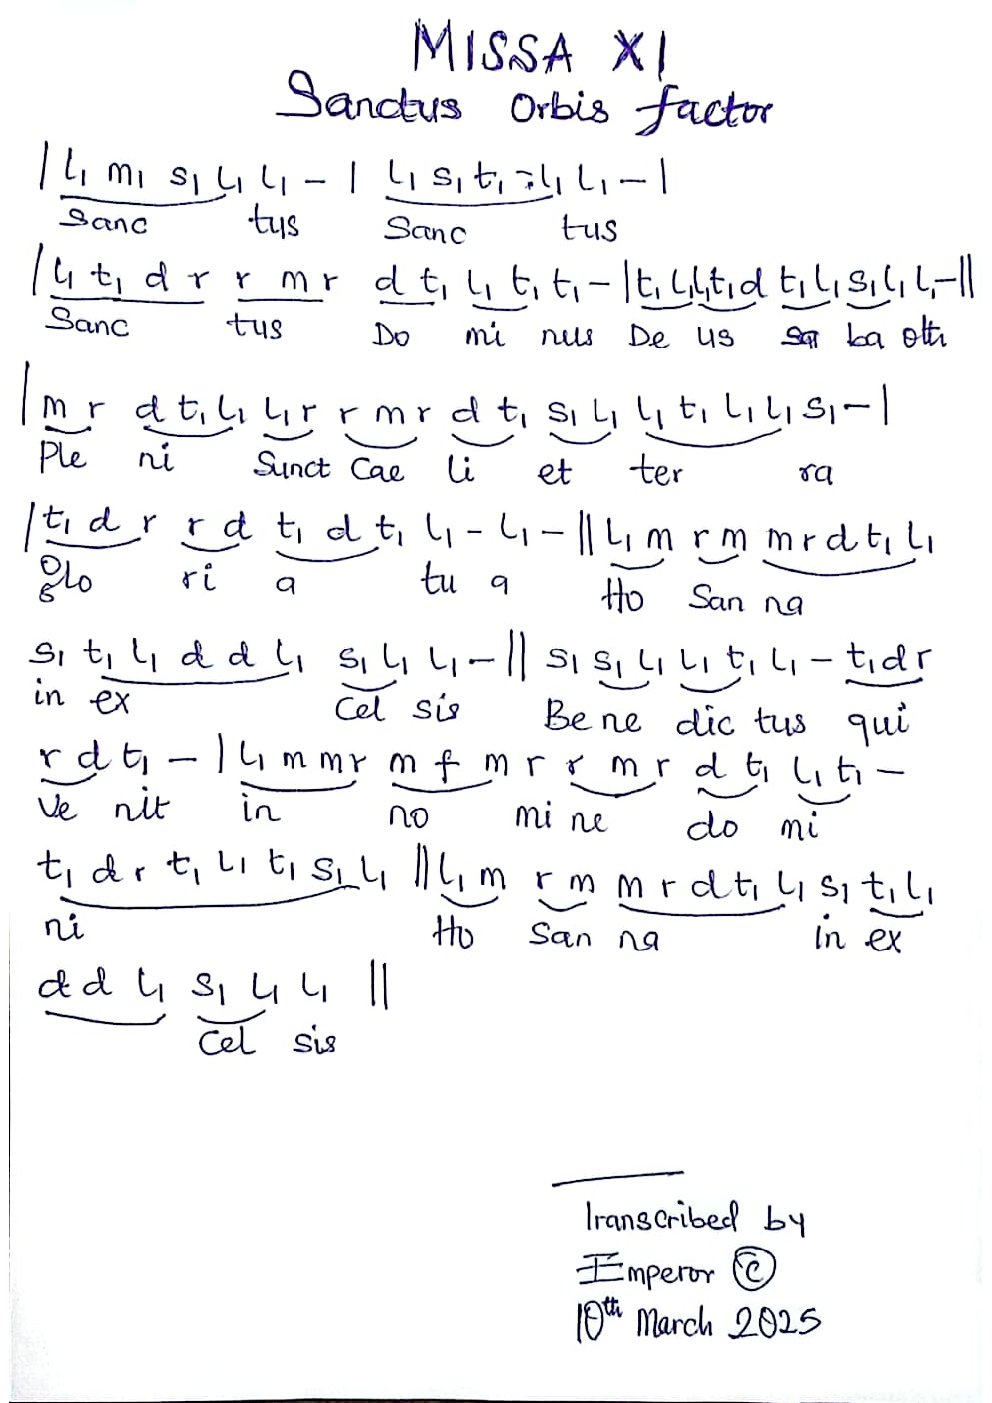 MISSA XI
Sanctus Orbis factor
| l₁ m₁ s₁ l₁ l₁ – | l₁ s₁ t₁ l₁ l₁ – |
Sanc tus Sanc tus
| l₁ t₁ d r r m r d t₁ l₁ t₁ t₁ – | t₁ l₁ l₁ t₁ d t₁ l₁ s₁ l₁ l₁ – ||
Sanc tus Do mi nus De us sa ba oth
| m r d t₁ l₁ l₁ r r m r d t₁ s₁ l₁ l₁ t₁ l₁ l₁ s₁ – |
Ple ni Sunct Cae li et ter ra
| t₁ d r r d t₁ d t₁ l₁ – l₁ – || l₁ m r m m r d t₁ l₁
glo ri a tu a Ho San na
s₁ t₁ l₁ d d l₁ s₁ l₁ l₁ – || s₁ s₁ l₁ l₁ t₁ l₁ – t₁ d r
in ex Cel sis Be ne dic tus qui
r d t₁ – | l₁ m m r m f m r r m r d t₁ l₁ t₁ –
Ve nit in no mi ne do mi
t₁ d r t₁ l₁ t₁ s₁ l₁ || l₁ m r m m r d t₁ l₁ s₁ t₁ l₁
ni Ho San na in ex
d d l₁ s₁ l₁ l₁ ||
Cel sis
Transcribed by
Emperor ©
10th March 2025